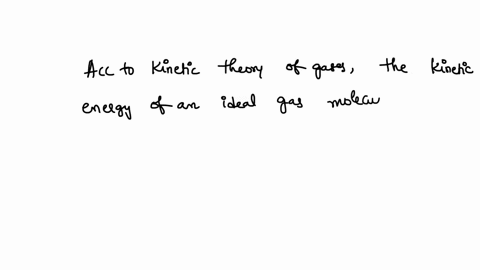 Acc to Kinetic theory of gases, the kinetic
energy of an ideal gas molecu